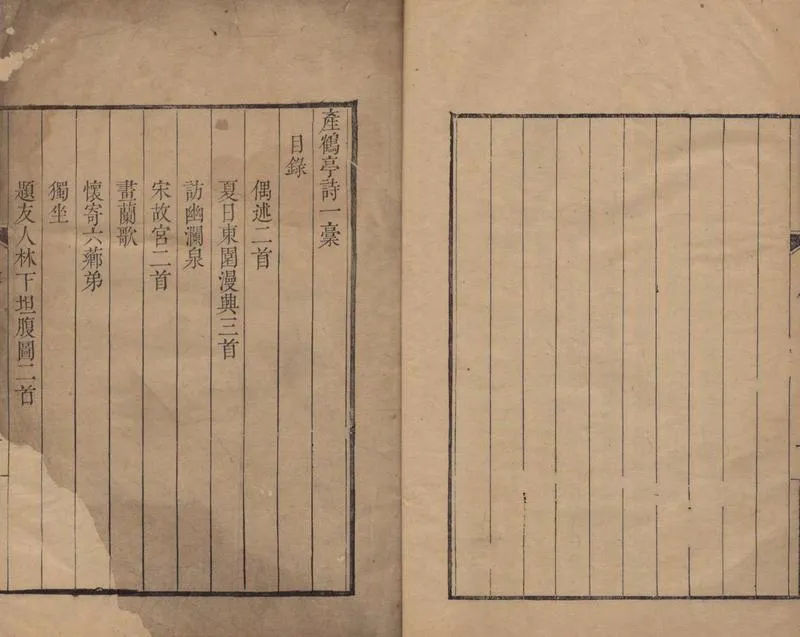 產鶴亭詩一稾
目錄
偶述二首
夏日東園漫興三首
訪幽瀾泉
宋故宮二首
畫蘭歌
懷寄六薌弟
獨坐
題友人林下坦腹圖二首